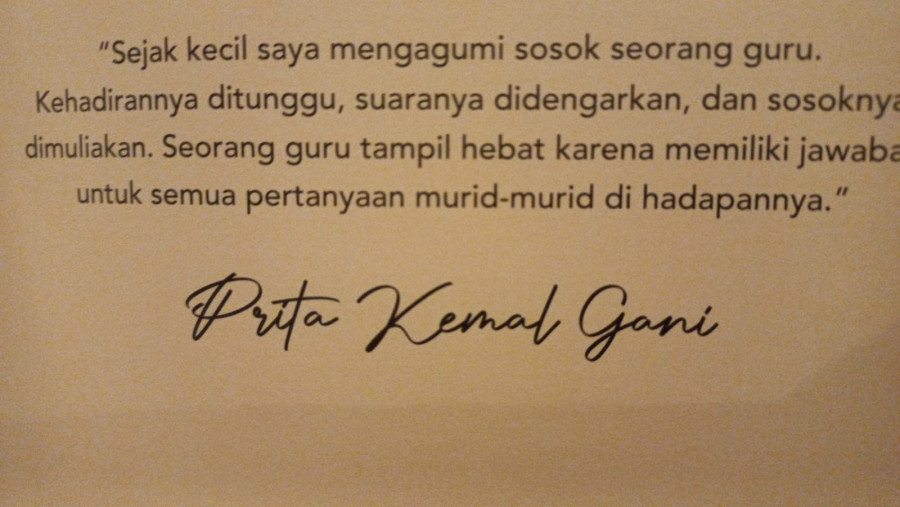 “Sejak kecil saya mengagumi sosok seorang guru.
Kehadirannya ditunggu, suaranya didengarkan, dan sosoknya
dimuliakan. Seorang guru tampil hebat karena memiliki jawaba
untuk semua pertanyaan murid-murid di hadapannya.”
Prita Kemal Gani